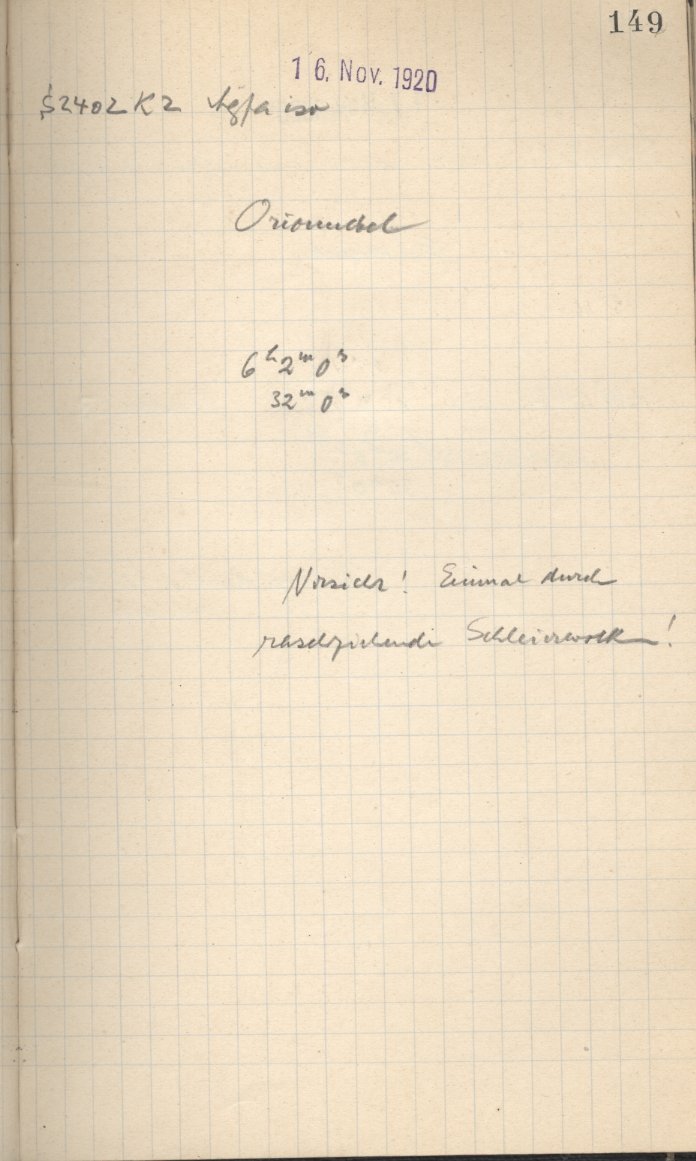 149
16. Nov. 1920
S2402 K2 Agfa iso
Orionnebel
6ʰ2ᵐ0ˢ
32ᵐ0ˢ
Vorsicht! Einmal durch
raschziehende Schleierwolken!